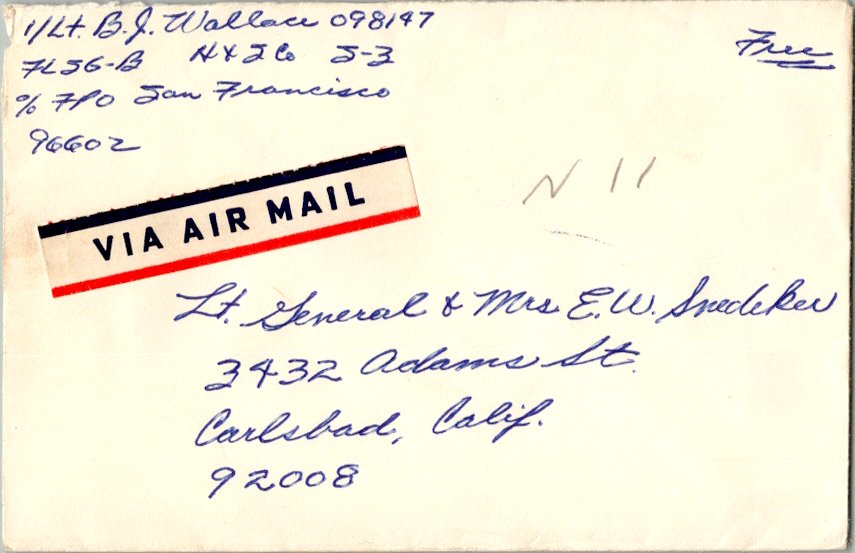 1/Lt. B.J. Wallace 098147
FLSG-B H&SCo S-3
% FPO San Francisco
96602
Free
VIA AIR MAIL
N 11
Lt. General & Mrs E.W. Snedeker
3432 Adams St.
Carlsbad, Calif.
92008